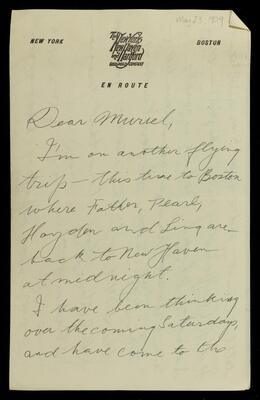 May 23, 1929
NEW YORK
The New York
New Haven
and Hartford
RAILROAD COMPANY
BOSTON
EN ROUTE
Dear Muriel,
I'm on another flying
trip – this time to Boston
where Father, Pearl,
Hayden and Ling are –
back to New Haven
at midnight.
I have been thinking
over the coming Saturdays,
and have come to the